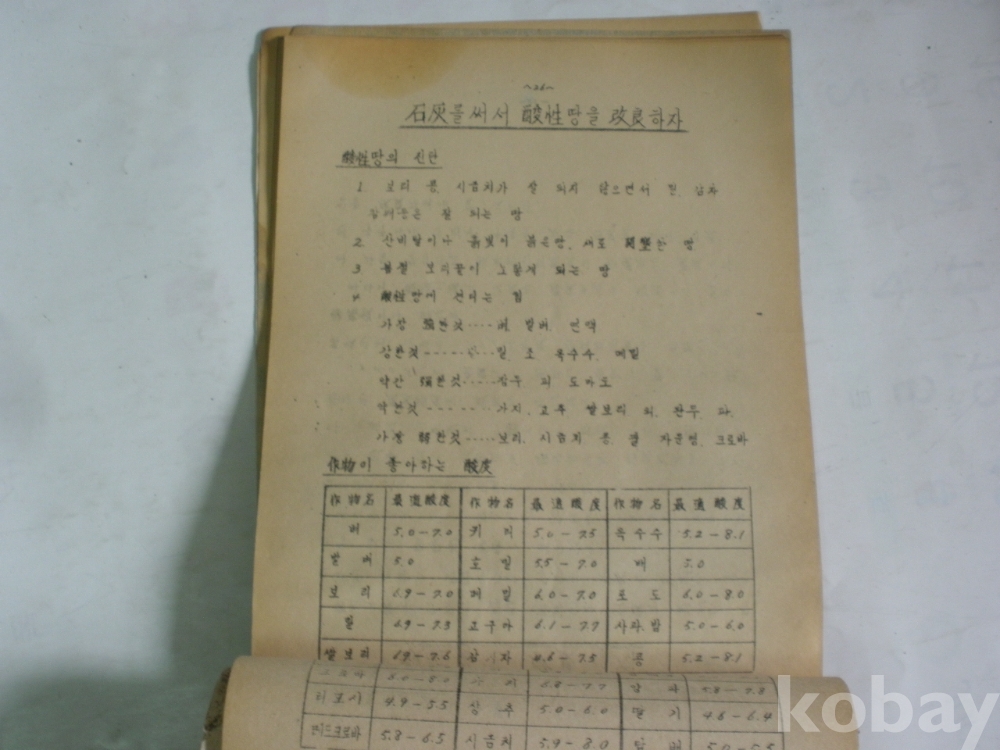 ~26~
石灰를 써서 酸性땅을 改良하자
酸性땅의 진단
1. 보리 콩. 시금치가 잘 되지 않으면서 감자
잘 되는 땅
2. 산비탈이나 붉은땅. 새로 開墾한 땅
3. 봄철 보리끝이 노랗게 되는 땅
산도는 힘
가장 强한것 ---- 벼 밭벼
강한것 ------- 밀 조 옥수수. 메밀
약간 强한것 ---- 상추 도마도
약한것 ------- 가지. 고추 쌀보리 완두 파.
가장 弱한것 ---- 보리. 시금치 콩 팥 자운영. 크로바
作物이 좋아하는 酸度
作物名 最適酸度 作物名 最適酸度 作物名 最適酸度
벼 5.0-7.0 귀리 5.0-7.5 옥수수 5.2-8.1
밭벼 5.0 호밀 5.5-7.0 배 5.0
보리 6.9-7.0 메밀 6.0-7.0 포도 6.0-8.0
밀 6.9-7.3 고구마 6.1-7.7 사과.밤 5.0-6.0
쌀보리 6.9-7.6 감자 4.6-7.5 콩 5.2-8.1
6.0-8.0 6.8-7.7 5.8-7.8
티모시 4.9-5.5 상추 5.0-6.0 딸기 4.6-6.4
레드크로바 5.8-6.5 시금치 5.9-8.0 담배 5.0-5.5
kobay